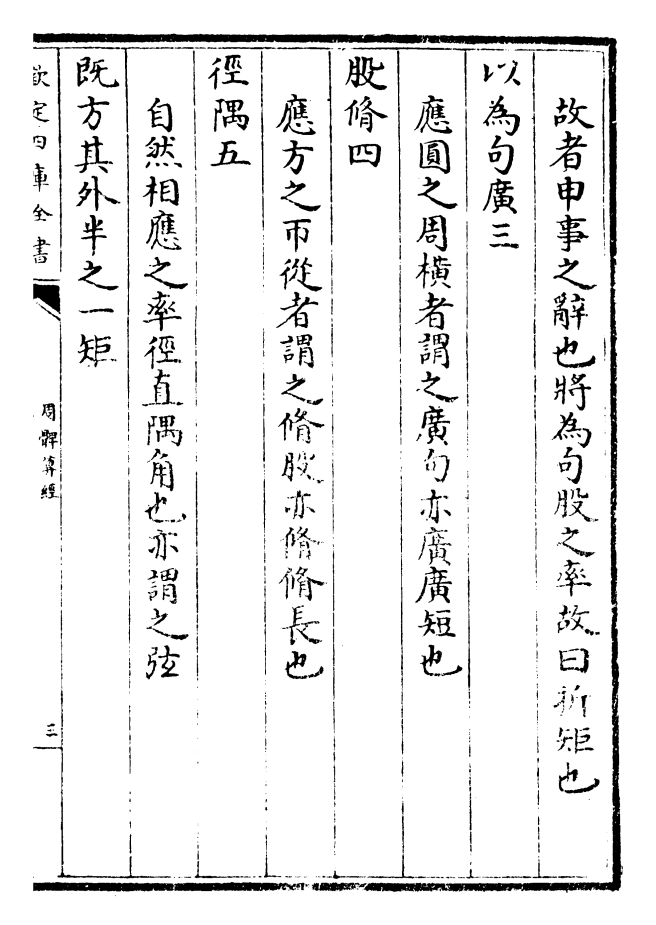 故者申事之辭也將為句股之率故曰折矩也
以為句廣三
應圓之周橫者謂之廣句亦廣廣短也
股脩四
應方之帀從者謂之脩股亦脩脩長也
徑隅五
自然相應之率徑直隅角也亦謂之弦
既方其外半之一矩
欽定四庫全書
周髀算經
三